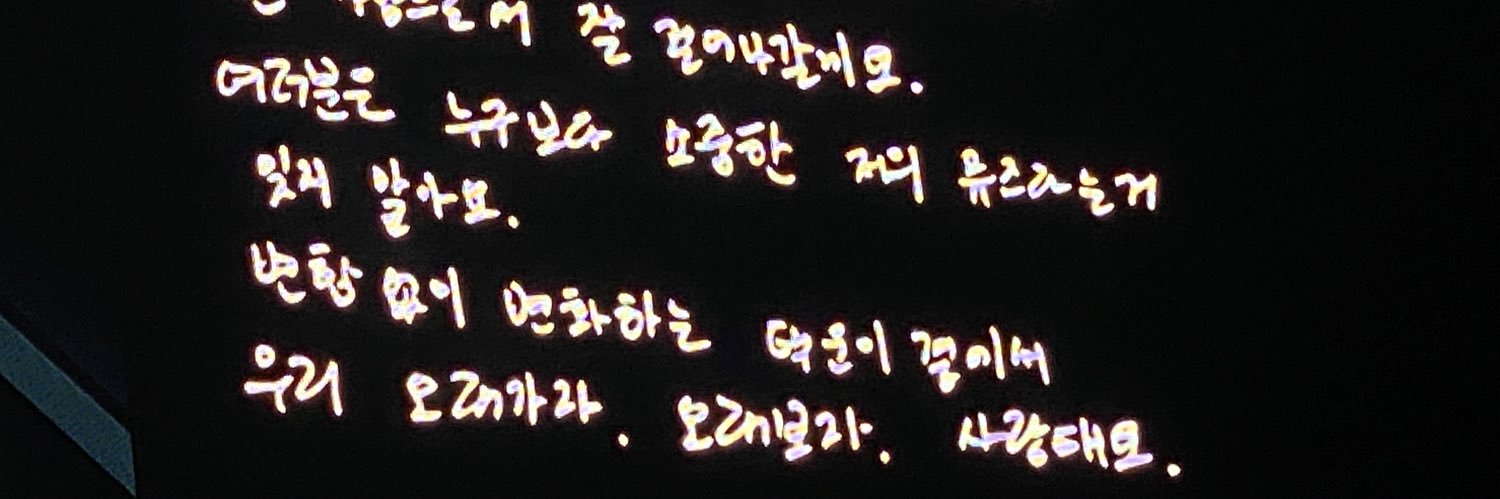 잘 걸어나갈께요.
여러분은 누구보다 소중한 저의 뮤즈라는거
잊지 말아요.
변함 없이 변화하는 덕운이 곁에서
우리 오래가자. 오래보자. 사랑해요.